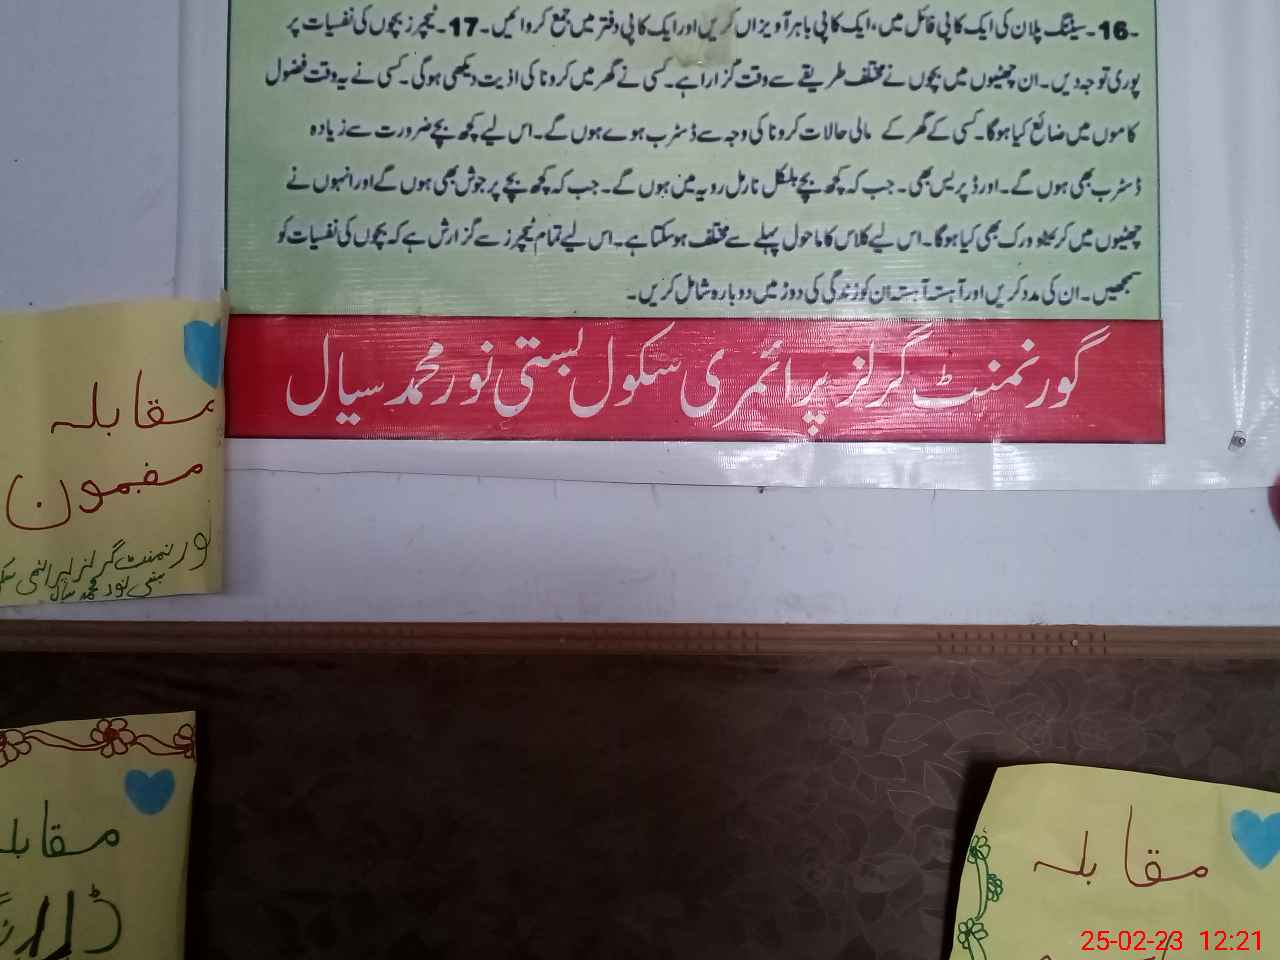 ۔16۔سیٹنگ پلان کی ایک کاپی فائل میں، ایک کاپی باہر آویزاں کریں اور ایک کاپی دفتر میں جمع کروائیں۔17۔ٹیچرز بچوں کی نفسیات پر
پوری توجہ دیں۔ان چھٹیوں میں بچوں نے مختلف طریقے سے وقت گزارا ہے۔کسی نے گھر میں کرونا کی اذیت دیکھی ہوگی۔کسی نے یہ وقت فضول
کاموں میں ضائع کیا ہوگا۔کسی کے گھر کے مالی حالات کرونا کی وجہ سے ڈسٹرب ہوے ہوں گے۔اس لیے کچھ بچے ضرورت سے زیادہ
ڈسٹرب بھی ہوں گے۔اورڈپریس بھی۔جب کہ کچھ بچے بلکل نارمل رویہ میں ہوں گے۔جب کہ کچھ بچے پرجوش بھی ہوں گے اور انہوں نے
چھٹیوں میں کریٹو ورک بھی کیا ہوگا۔اس لیے کلاس کا ماحول پہلے سے مختلف ہوسکتا ہے۔اس لیے تمام ٹیچرز سے گزارش ہے کہ بچوں کی نفسیات کو
سمجھیں۔ان کی مدد کریں اور آہستہ آہستہ ان کو زندگی کی دوڑ میں دوبارہ شامل کریں۔
گورنمنٹ گرلز پرائمری سکول بستی نور محمد سیال
مقابلہ
مضمون
ورنمنٹ گرلز پرائمی سک
بستی نور محمد سیال
مقابلہ
مقابلہ
25-02-23 12:21